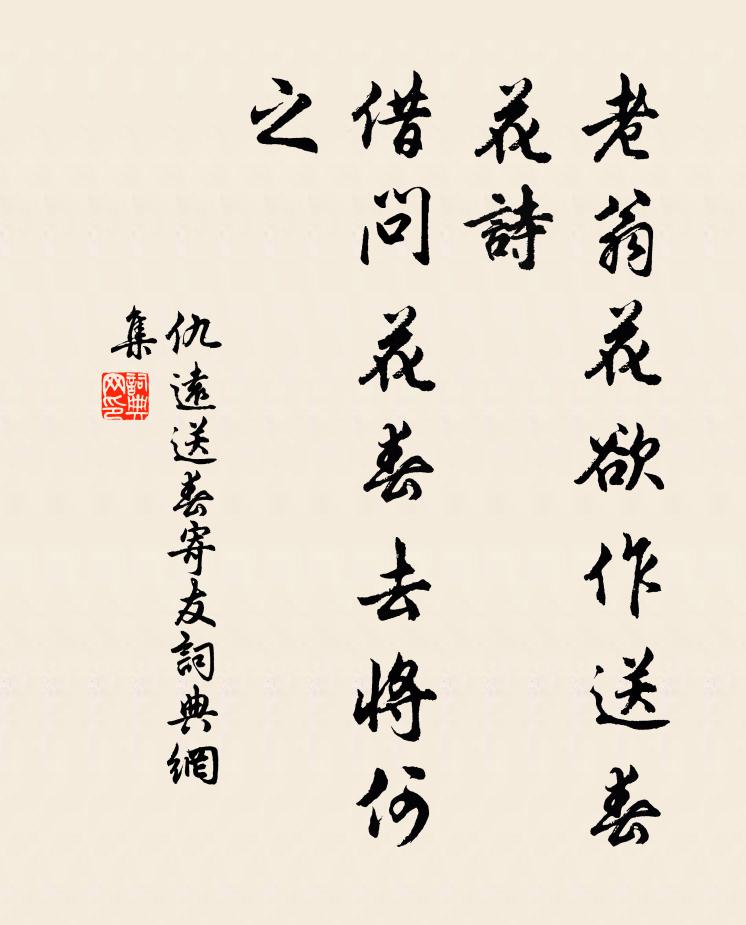 老翁花欲作送春
花詩
借問花春去將何
之
仇遠送春寄友詞典網
集
詞典
网印